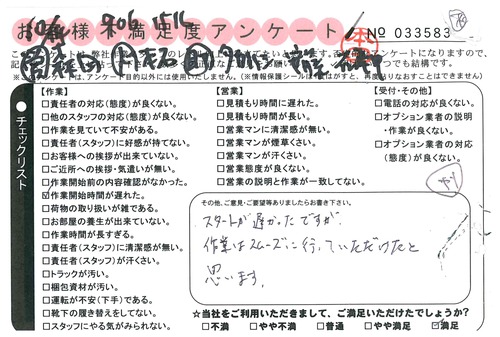 お客様不満足度アンケート
№ 033583
(※アンケート以外には使用いたしません。)(※情報保護シールははがすと、再度貼りなおすことはできません)
チェックリスト
【作業】
□責任者の対応(態度)が良くない。
□他のスタッフの対応(態度)が良くない。
□作業を見ていて不安がある。
□責任者(スタッフ)に好感が持てない。
□お客様への挨拶が出来ていない。
□ご近所への挨拶・気遣いが無い。
□作業開始前の内容確認がなかった。
☑作業開始時間が遅れた。
□荷物の取り扱いが雑である。
□お部屋の養生が出来ていない。
□作業時間が長すぎる。
□責任者(スタッフ)に清潔感が無い。
□責任者(スタッフ)が汗くさい。
□トラックが汚い。
□梱包資材が汚い。
□運転が不安(下手)である。
□靴下の履き替えをしてない。
□スタッフにやる気がみられない。
【営業】
□見積もり時間に遅れた。
□見積もり時間が長い。
□営業マンに清潔感が無い。
□営業マンが煙草くさい。
□営業マンが汗くさい。
□営業態度が良くない。
□営業の説明と作業が一致してない。
【受付・その他】
□電話の対応が良くない。
□オプション業者の説明
・作業が良くない。
□オプション業者の対応
が良くない。
その他、ご意見・ご要望等ありましたらお書き下さい。
スタートが遅かったですが、
作業はスムーズに行っていただけたと
思います。
☆当社をご利用いただきまして、ご満足いただけたでしょうか?
□不満 □やや不満 □普通 □やや満足 ☑満足